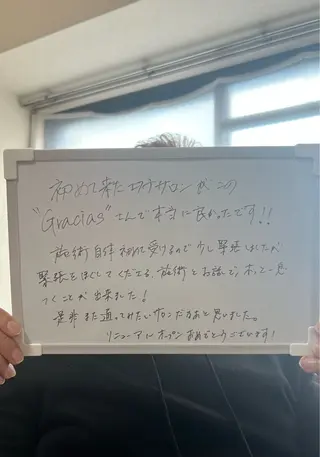 初めて来たエステサロンがこの
"Gracias"さんで本当に良かったです!!
施術自体初めて受けるので少し緊張しましたが
緊張をほぐしてくださる、施術とお話で、ホッと一息
つくことが出来ました!
是非また通ってみたいサロンだなあと思いました。
リニューアルオープンおめでとうございます!